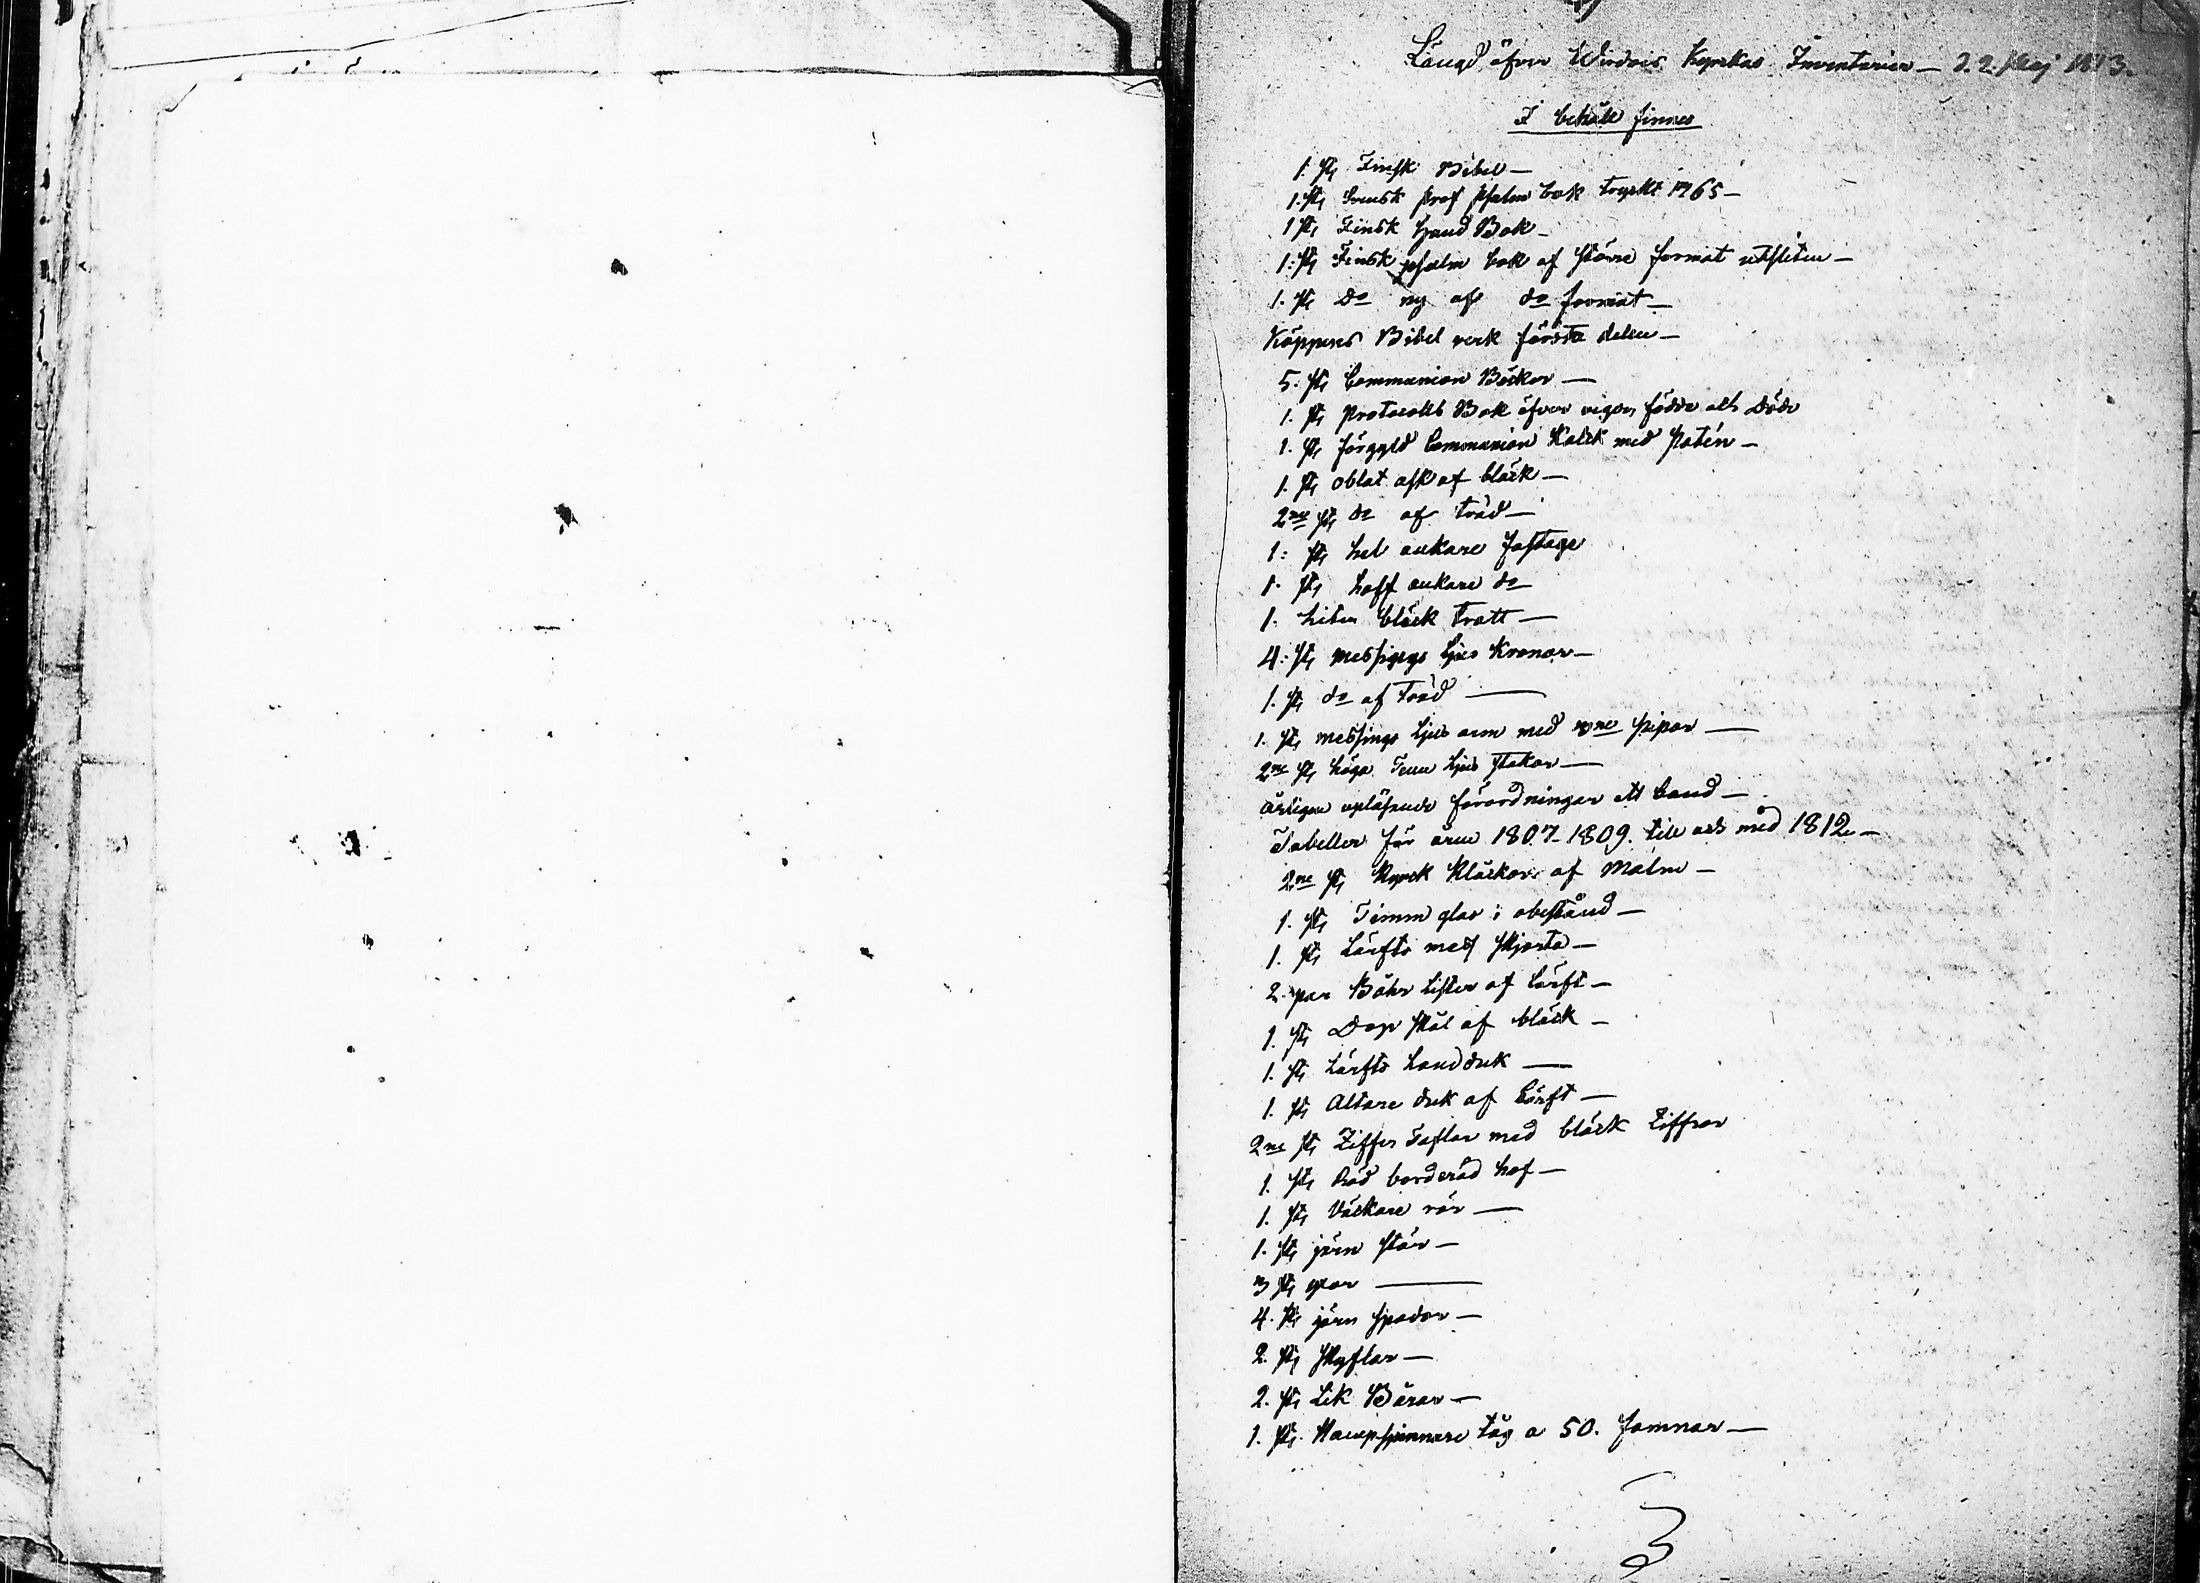 Längd öfver Wirdois Kyrkas Inventarier — d. 2. Maj 1813.
I behåll finnes
1. st. Finsk Bibel —
1. st. Svensk prof psalm bok tryckt 1765 —
1 st. Finsk Hand Bok —
1. st. Finsk psalm bok af större format utsliten —
1. st. do ny af do format —
Köppens Bibel verk första delen —
5. st. Communion Böcker —
1. st. Protocolls Bok öfver vigde, födde och döde
1. st. förgyld Communion Kalck med Patén —
1. st. oblat ask af bläck —
2ne st. do af träd —
1: st. hel ankare fastage
1. st. half ankare do
1. liten bläck tratt —
4: st. messings ljus Kronor —
1. st. do af träd —
1. st. messings ljus arm med pipor —
2ne st. höga Tenn ljus stakar —
årligen upläsande förordningar ett band —
Tabeller för åren 1807 - 1809. till och med 1812 —
2ne st. Kyrck Kläckor af Malm —
1. st. Timm glas i obestånd —
1. st. Lärfts mess skjorta —
2. par af lärft —
1. st. Dop skål af bläck —
1. st. Lärfts handduk —
1. st. Altare duk af Lärft —
2ne st. Ziffer Taflor med bläck Ziffror
1. st. Röd borderad haf —
1. st. Väckare rör —
1. st. järn stör —
3 st. —
4. st. järn spador —
2. st. skyflar —
2. st. Lik Bårar —
1. st. tåg a 50. famnar —